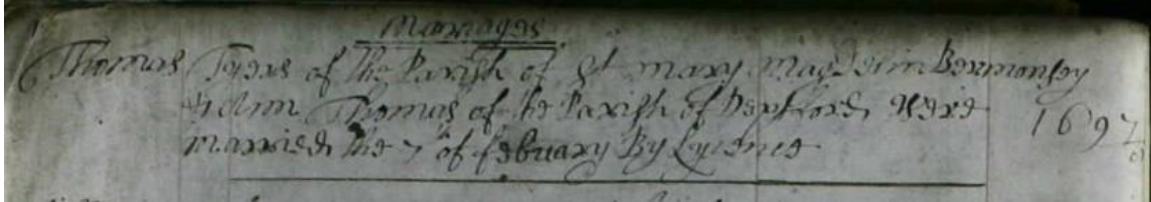 Marriages
Thomas Tyers of the Parish of St mary Magdelin Bermonsey
& Ann Thomas of the Parish of Depford were
married the 7 of febuary By Lycence
1697